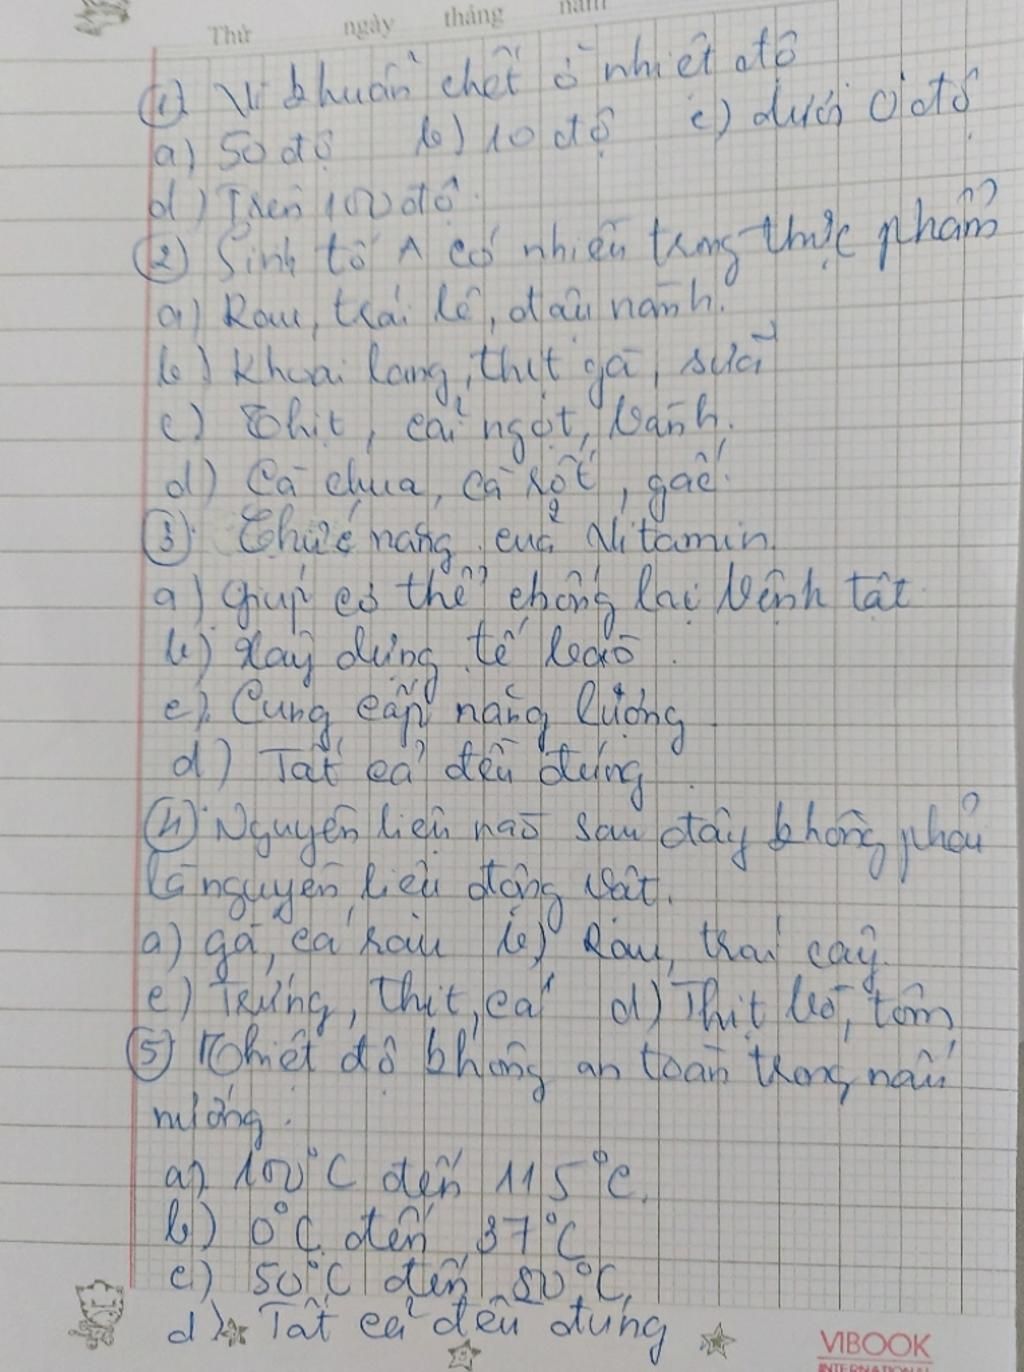 Thứ ngày tháng năm
① Vi khuẩn chết ở nhiệt độ
a) 50 độ b) 10 độ c) dưới 0 độ
d) Trên 100 độ.
② Sinh tố A có nhiều trong thực phẩm
a) Rau, trái lê, đậu nành.
b) Khoai lang, thịt gà, sữa
c) Thịt, cải ngọt, bánh.
d) Cà chua, cà rốt, gấc.
③ Chức năng của Vitamin.
a) Giúp cơ thể chống lại bệnh tật
b) Xây dựng tế bào.
c) Cung cấp năng lượng.
d) Tất cả đều đúng.
④ Nguyên liệu nào sau đây không phải
là nguyên liệu động vật.
a) gà, cá, rau b) Rau, trái cây.
c) Trứng, thịt, cá d) Thịt bò, tôm
⑤ Nhiệt độ không an toàn trong nấu
nướng.
a) 100°C đến 115°C.
b) 0°C đến 37°C
c) 50°C đến 80°C.
d) Tất cả đều đúng
VIBOOK
INTERNATIONAL